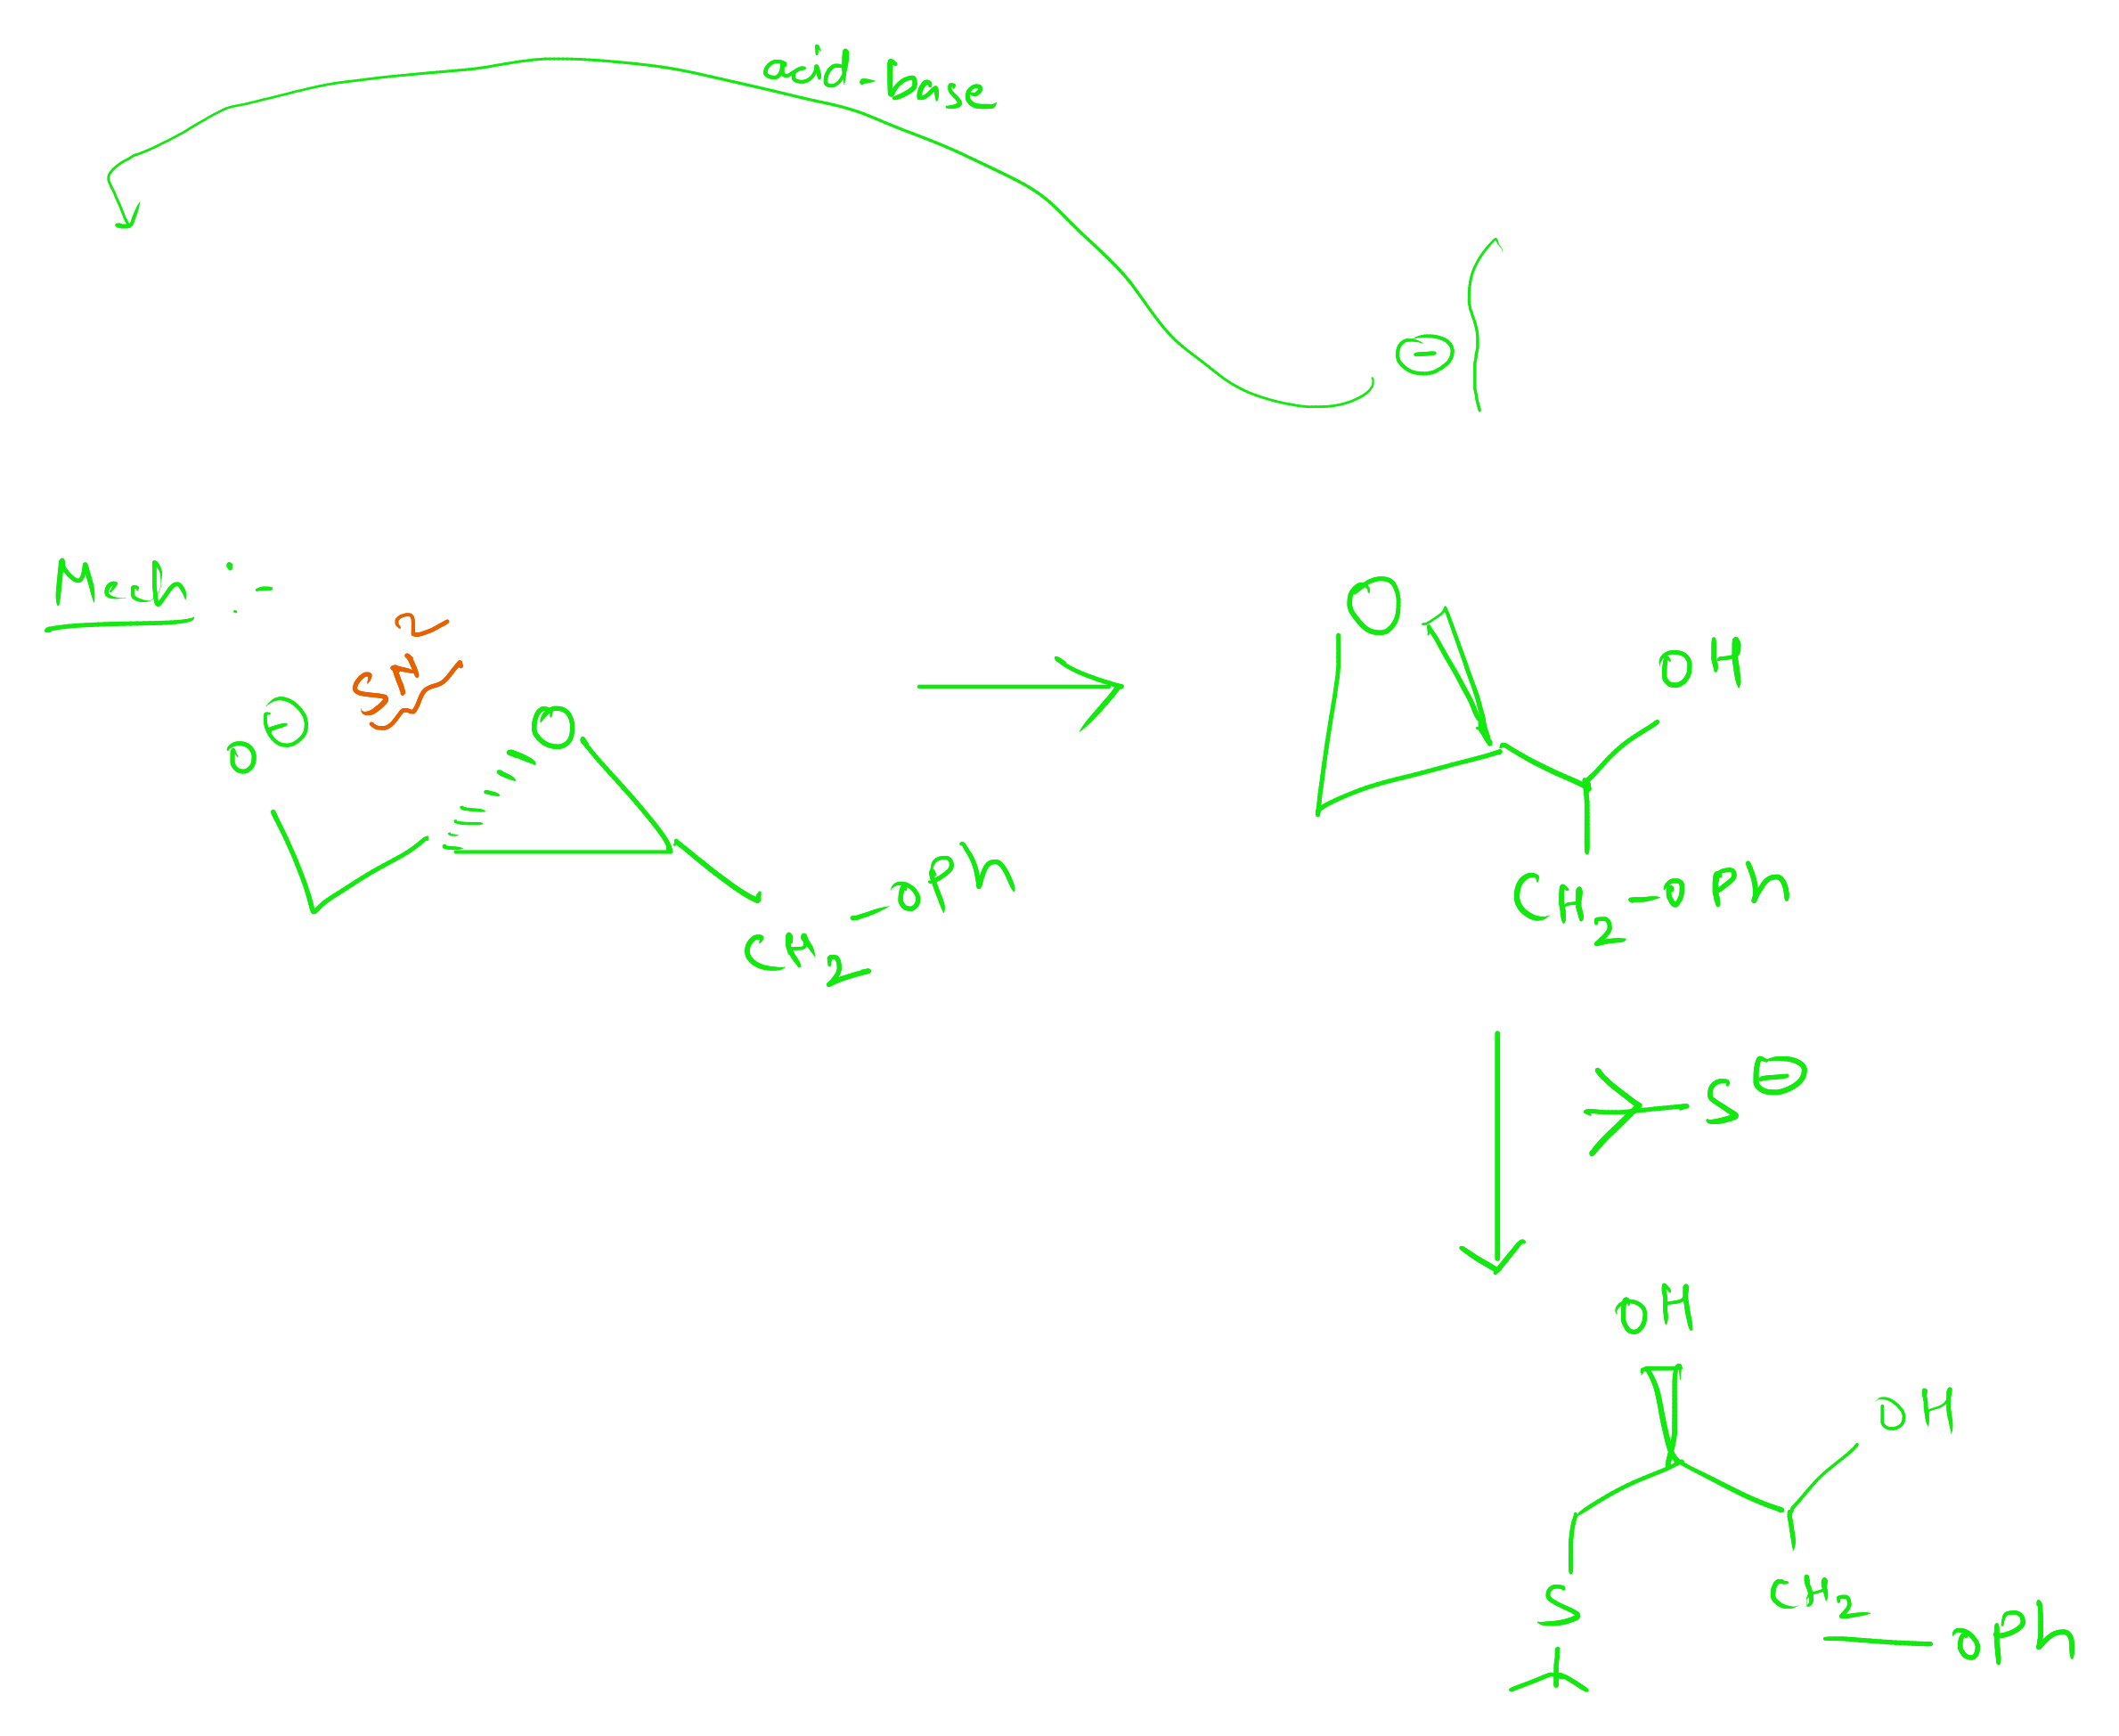 acid-base
⊖
Mech :-
SN2
O⊖
O
CH2-OPh
O
OH
CH2-OPh
S⊖
OH
OH
S
CH2-OPh